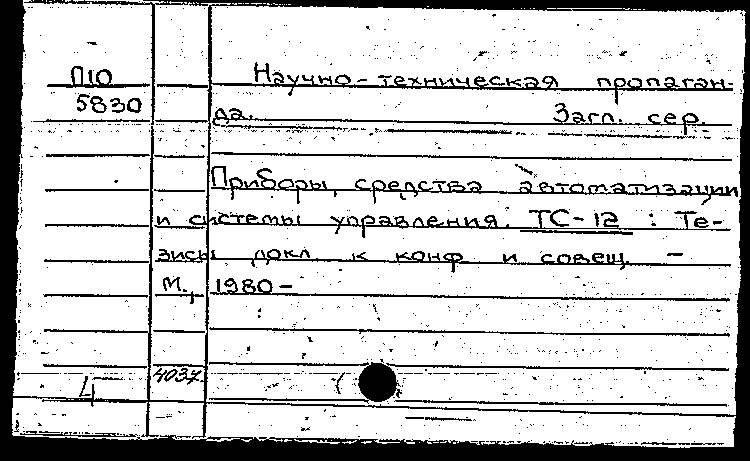 П10
5830
Научно-техническая пропаган-
да. Загл. сер.
Приборы, средства автоматизации
и системы управления. ТС-12 : Те-
зисы докл. к конф. и совещ. –
М., 1980–
4037
4